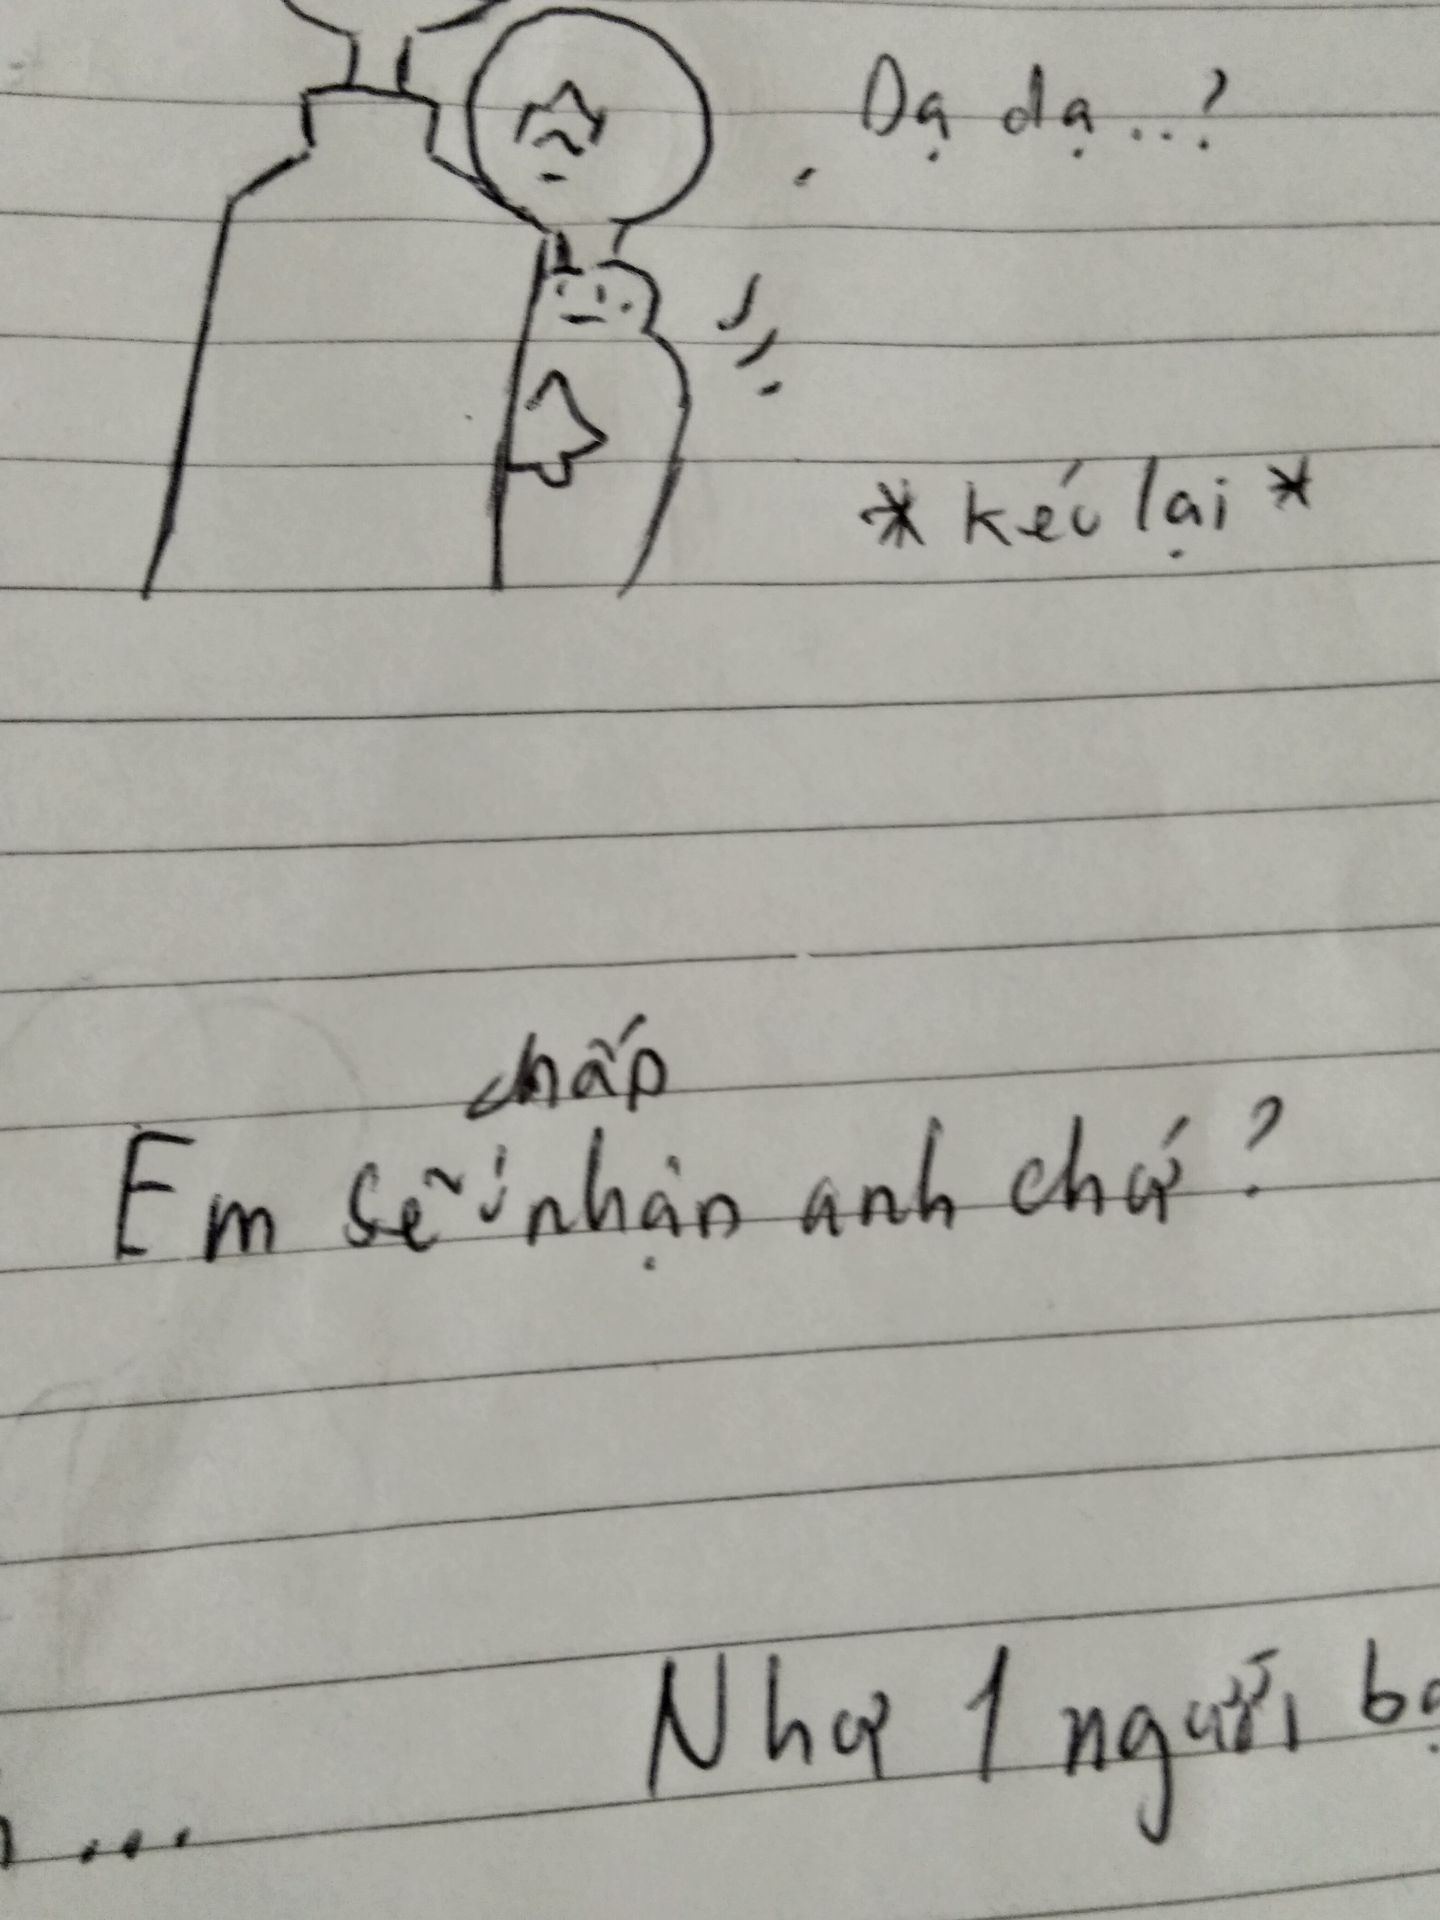 Dạ dạ...?
* kéo lại *
Em sẽ chấp nhận anh chứ?
Như 1 người
...